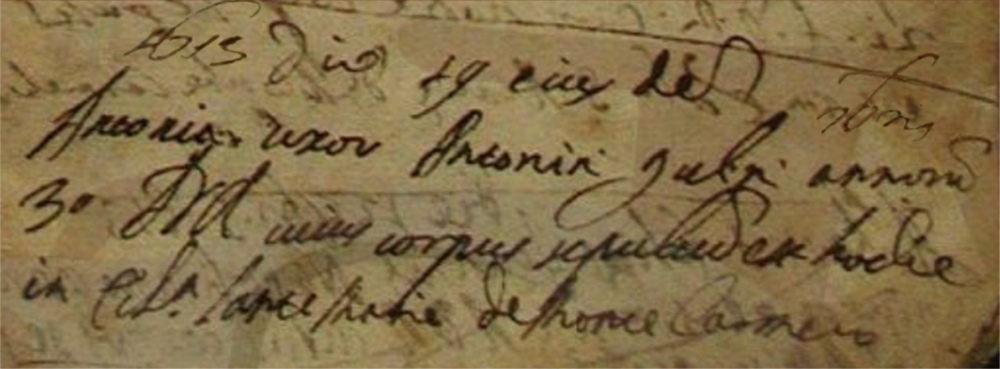 1613 Die 19 eiusdē
Antonia uxor Antonini annorū
30 cuius corpus sepultū est hodie
in Ecla Sancte Marie de Monte Carmelo